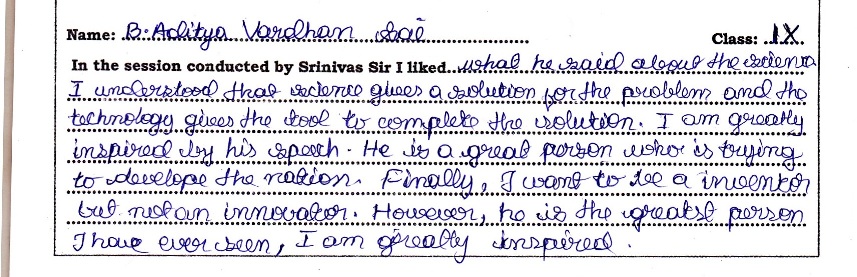 Name: B. Aditya Vardhan Sai Class: IX.
In the session conducted by Srinivas Sir I liked what he said about the science
I understood that science gives a solution for the problem and the
technology gives the tool to complete the solution. I am greatly
inspired by his speach. He is a great person who is trying
to develope the nation. Finally, I want to be a inventor
but not an innovator. However, he is the greatest person
I have ever seen, I am greatly inspired.